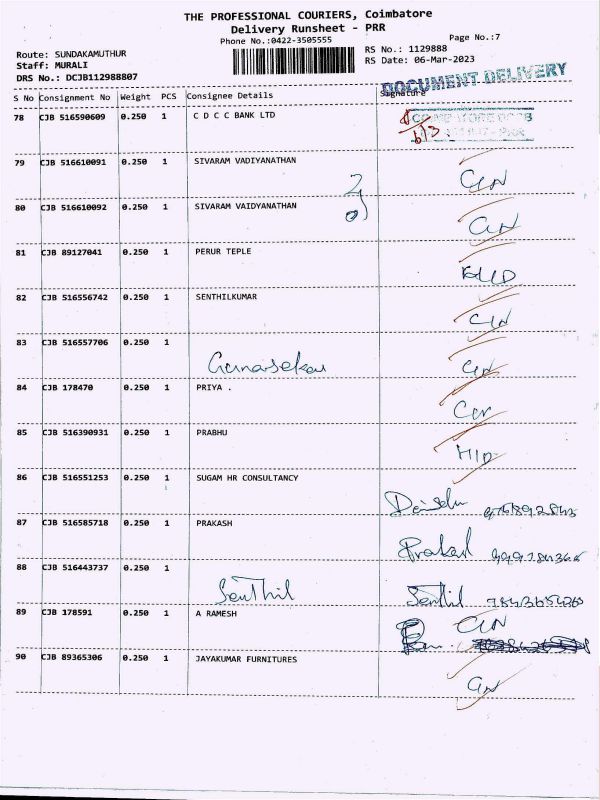 THE PROFESSIONAL COURIERS, Coimbatore
Delivery Runsheet - PRR
Phone No.:0422-3505555
Page No.:7
Route: SUNDAKAMUTHUR
Staff: MURALI
DRS No.: DCJB112988807
RS No.: 1129888
RS Date: 06-Mar-2023
DOCUMENT DELIVERY
S No Consignment No Weight PCS Consignee Details Signature
78 CJB 516590609 0.250 1 C D C C BANK LTD
79 CJB 516610091 0.250 1 SIVARAM VADIYANATHAN
80 CJB 516610092 0.250 1 SIVARAM VAIDYANATHAN
81 CJB 89127041 0.250 1 PERUR TEPLE
82 CJB 516556742 0.250 1 SENTHILKUMAR
83 CJB 516557706 0.250 1
Gunasekar
84 CJB 178470 0.250 1 PRIYA .
85 CJB 516390931 0.250 1 PRABHU
86 CJB 516551253 0.250 1 SUGAM HR CONSULTANCY
87 CJB 516585718 0.250 1 PRAKASH
Prakash
88 CJB 516443737 0.250 1
Senthil Senthil
89 CJB 178591 0.250 1 A RAMESH
90 CJB 89365306 0.250 1 JAYAKUMAR FURNITURES